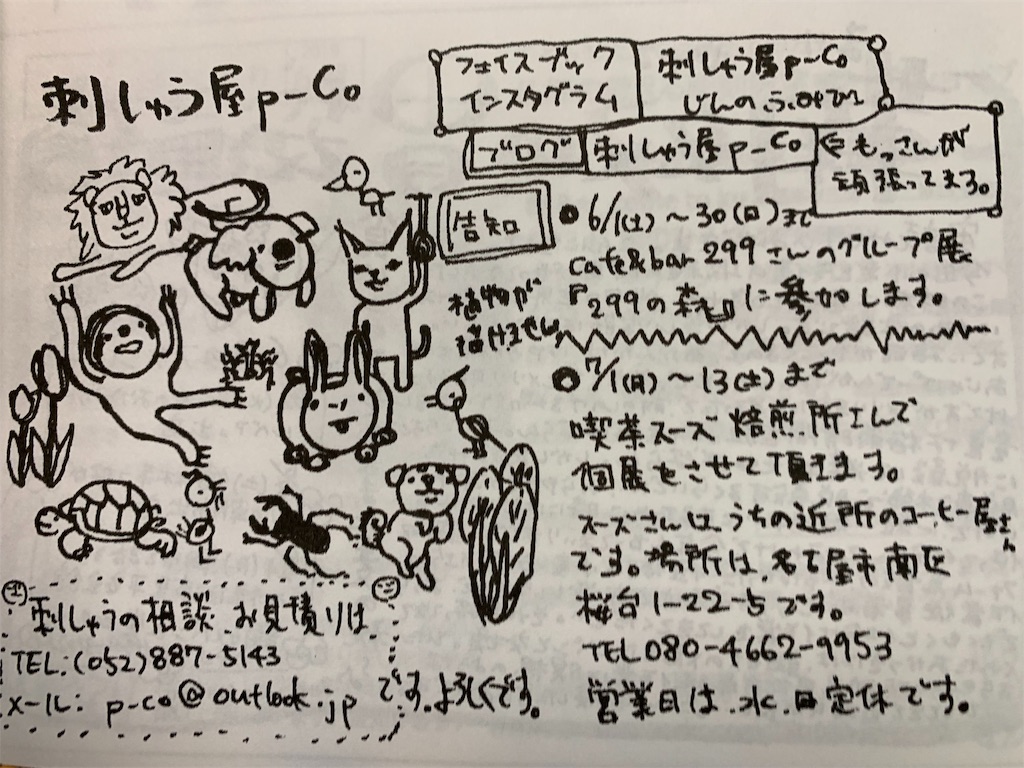 刺しゅう屋p-Co
フェイスブック
インスタグラム
刺しゅう屋p-Co
じんのふみひろ
ブログ
刺しゅう屋p-Co
⇦もっさんが
頑張ってます。
告知
●6/1(土)～30(日)まで
cafe&bar 299さんのグループ展
『299の森』に参加します。
植物が
描けません
●7/1(月)～13(土)まで
喫茶スーズ焙煎所さんで
個展をさせて頂きます。
スーズさんは、うちの近所のコーヒー屋さん
です。場所は、名古屋市南区
桜台1-22-5です。
TEL 080-4662-9953
営業日は、水、日定休です。
刺しゅうの相談、お見積りは
TEL:(052)887-5143
メール: p-co@outlook.jp です。よろしくです。